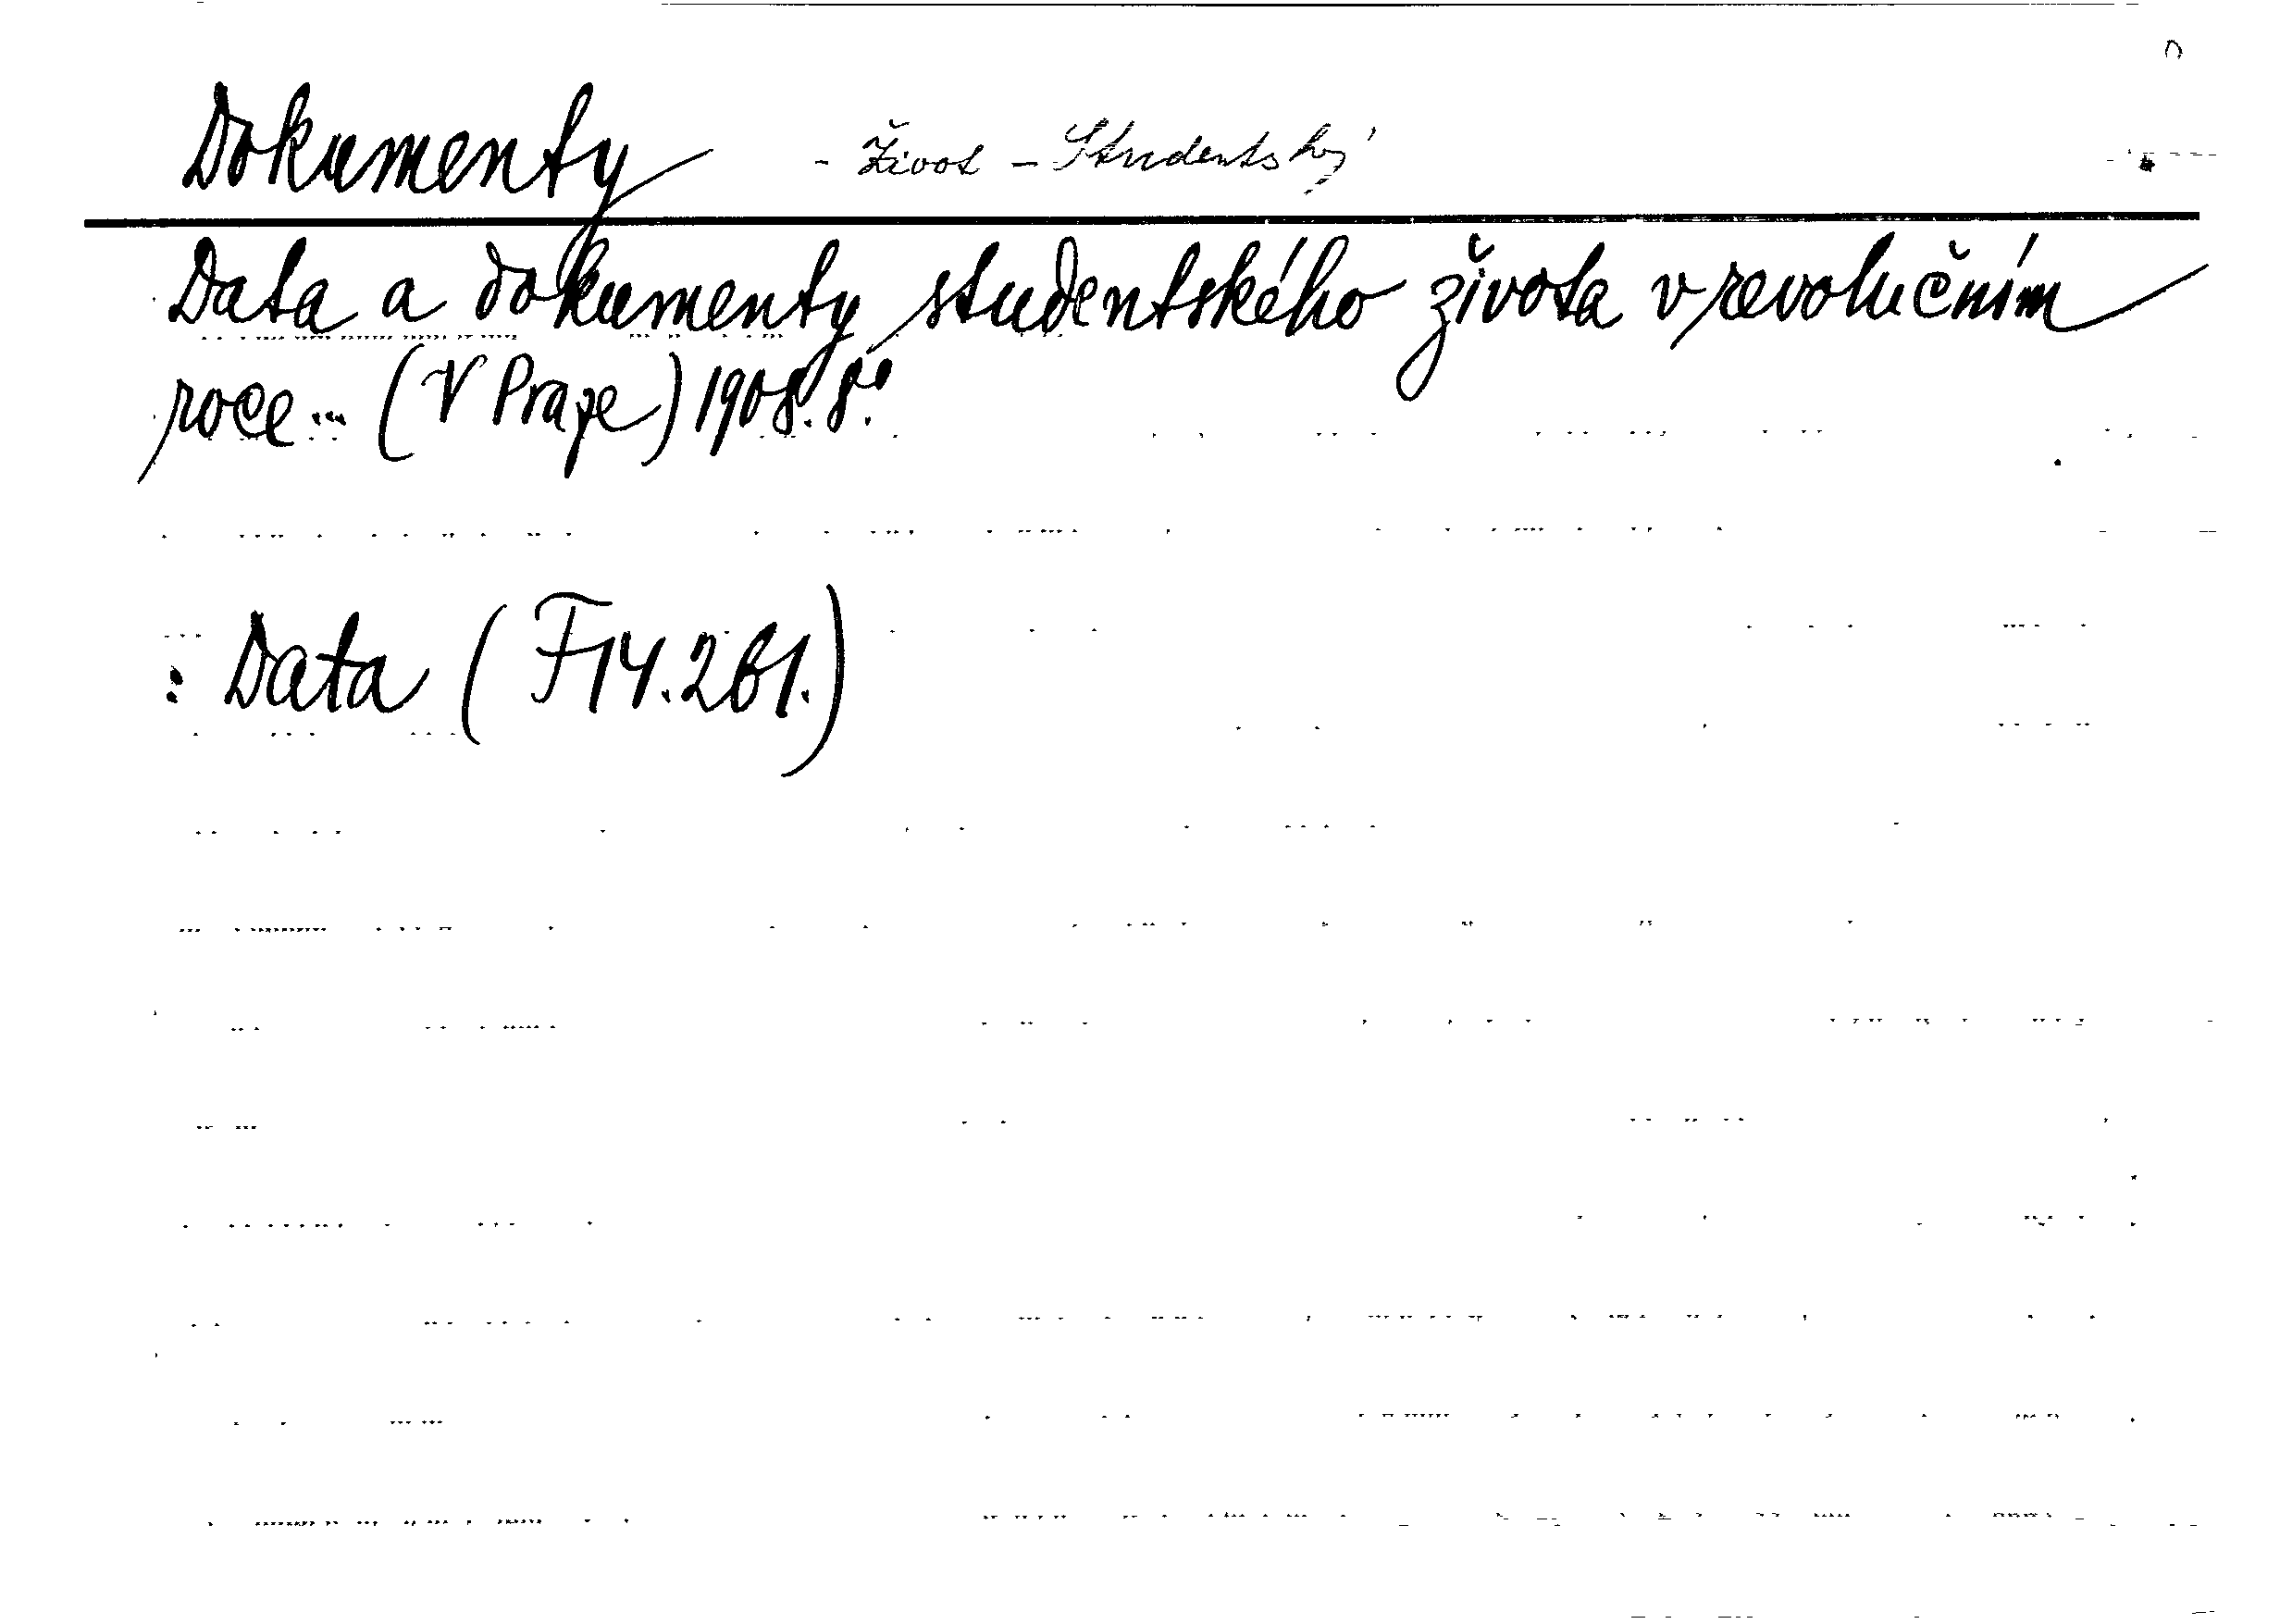 Dokumenty - Život - Studentský
Data a dokumenty studentského života v revolučním
roce... (V Praze) 1908. 8º.
: Data (F14.261.)